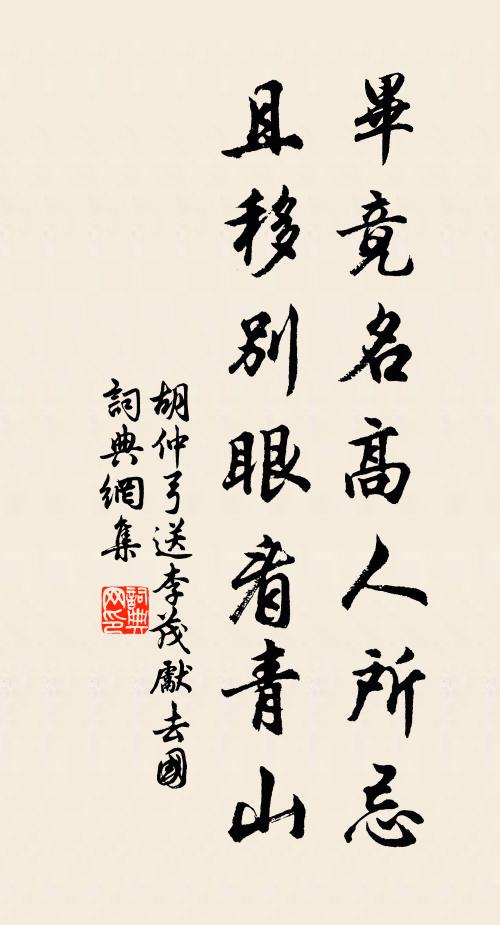 畢竟名高人所忌
且移別眼看青山
胡仲弓送李茂獻去國
詞典網集
詞典
网印